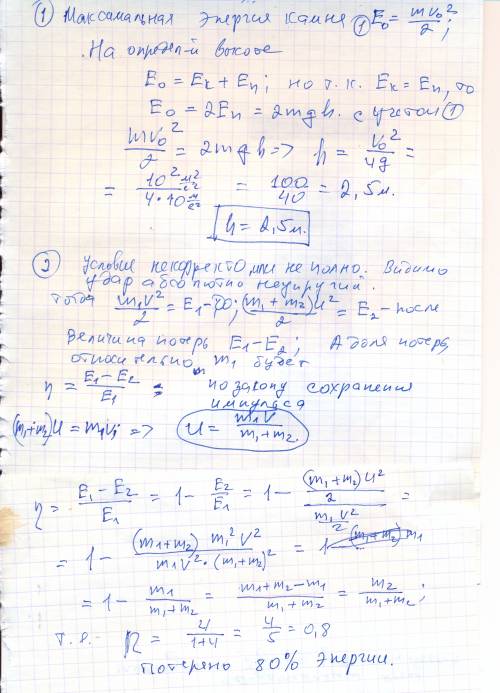 ① Максимальная энергия камня ① E₀ = mv₀²/2;
На определ-й высоте
E₀ = Eк + Eп; но т.к. Eк = Eп, то
E₀ = 2Eп = 2mgh. с учётом ①
mv₀²/2 = 2mgh => h = v₀²/4g =
= 10² м²/с² / 4*10 м/с² = 100/40 = 2,5м.
h = 2,5м.
2 Условие некорректо, или не полно. Видимо
удар абсолютно неупругий.
тогда m₁v²/2 = E₁ - до; (m₁ + m₂)u²/2 = E₂ - после
Величина потерь E₁ - E₂; А доля потерь,
относительно m₁ будет
η = E₁ - E₂/E₁; по закону сохранения
импульса
(m₁+m₂)u = m₁v; => u = m₁v/m₁+m₂.
η = E₁ - E₂/E₁ = 1 - E₂/E₁ = 1 - (m₁+m₂)u²/2 / m₁v²/2 =
= 1 - (m₁+m₂) m₁² v²/m₁v² * (m₁+m₂)² =
= 1 - m₁/m₁+m₂ = m₁+m₂-m₁/m₁+m₂ = m₂/m₁+m₂;
т.е. η = 4/1+4 = 4/5 = 0,8
потеряно 80% энергии.